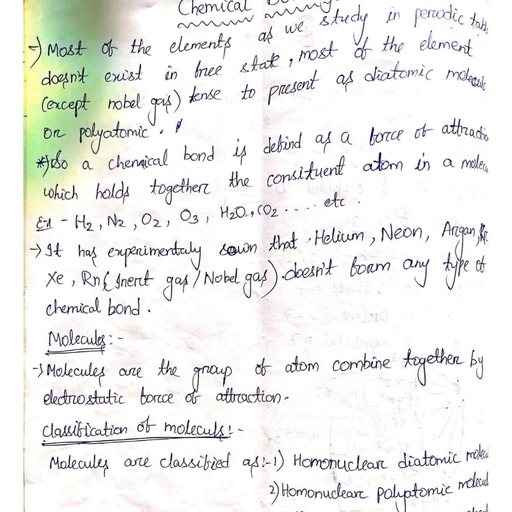 Chemical
→ Most of the elements as we study in periodic
doesn't exist in free state, most of the element
(except nobel gas) tense to present as diatomic
or polyatomic.
*) So a chemical bond is defind as a force of
which holds together the consituent atom in a
Ex - H2, N2, O2, O3, H2O, CO2 ..... etc.
→ It has experimentaly sown that Helium, Neon, Argan,
Xe, Rn( Inert gas / Nobel gas) doesn't form any type of
chemical bond.
Molecules:-
→ Molecules are the group of atom combine together by
electrostatic force of attraction.
Classification of moleculs:-
Molecules are classified as:- 1) Homonuclear diatomic
2) Homonuclear polyatomic